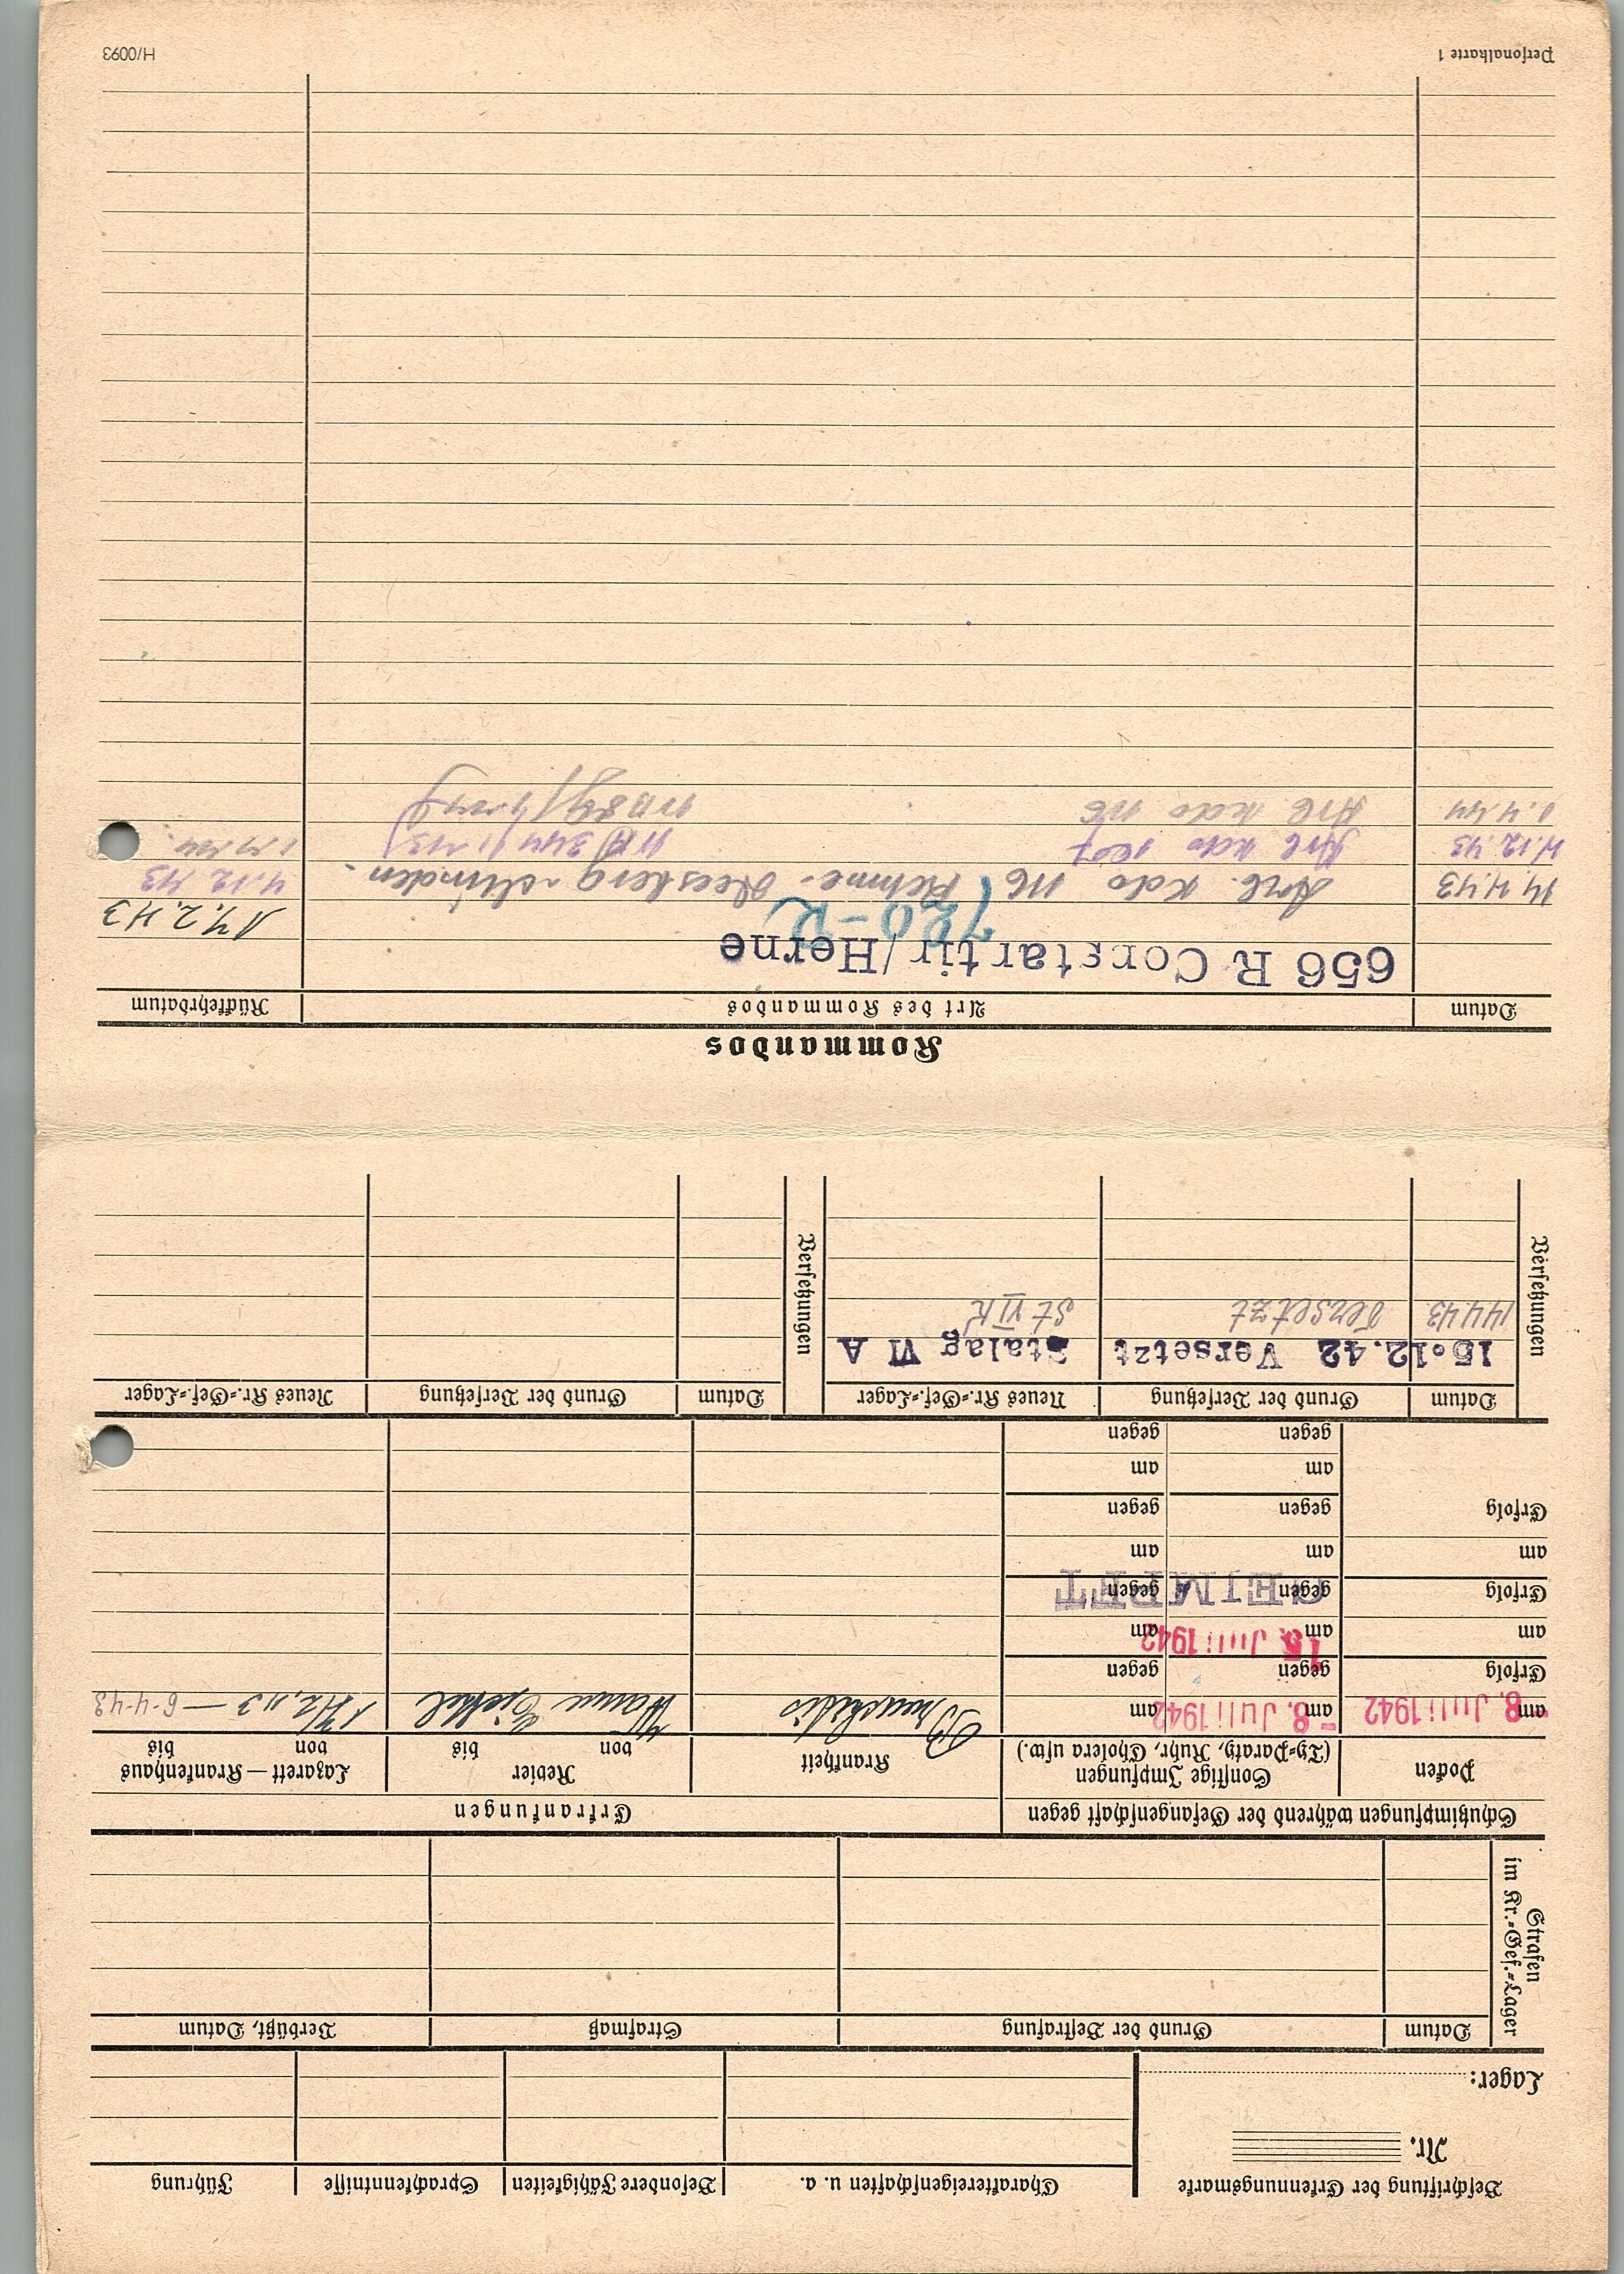 Beschriftung der Erkennungsmarke
Nr.
Lager:
Charaktereigenschaften u. a. Besondere Fähigkeiten Sprachkenntnisse Führung
Strafen
im Kr.=Gef.=Lager
Datum Grund der Bestrafung Strafmaß Verbüßt, Datum
Schutzimpfungen während der Gefangenschaft gegen Erkrankungen
Pocken
Sonstige Impfungen
(Ty=Paraty, Ruhr, Cholera usw.)
Krankheit
Revier
von bis
Lazarett — Krankenhaus
von bis
am 8. Juli 1942 am -8. Juli 1942 am
Bronchitis Wanne Eickel 17.2.43 — 6-4-43
Erfolg gegen gegen
am am 15. Juli 1942 am
Erfolg gegen gegen
GEIMPFT
am am am
Erfolg gegen gegen
am am
gegen gegen
Versetzungen
Datum Grund der Versetzung Neues Kr.=Gef.=Lager
15.12.42 Versetzt Stalag VI A
14.4.43 versetzt St VI K
Versetzungen
Datum Grund der Versetzung Neues Kr.=Gef.=Lager
Kommandos
Datum Art des Kommandos Rückkehrdatum
656 R Constantin/Herne 17.2.43
720-R
14.4.43 Arb. Kdo 116 Rehme- Minden. 4.12.43
4.12.43 Arb Kdo
1.4.44 Arb Kdo
Personalkarte 1
H/0093